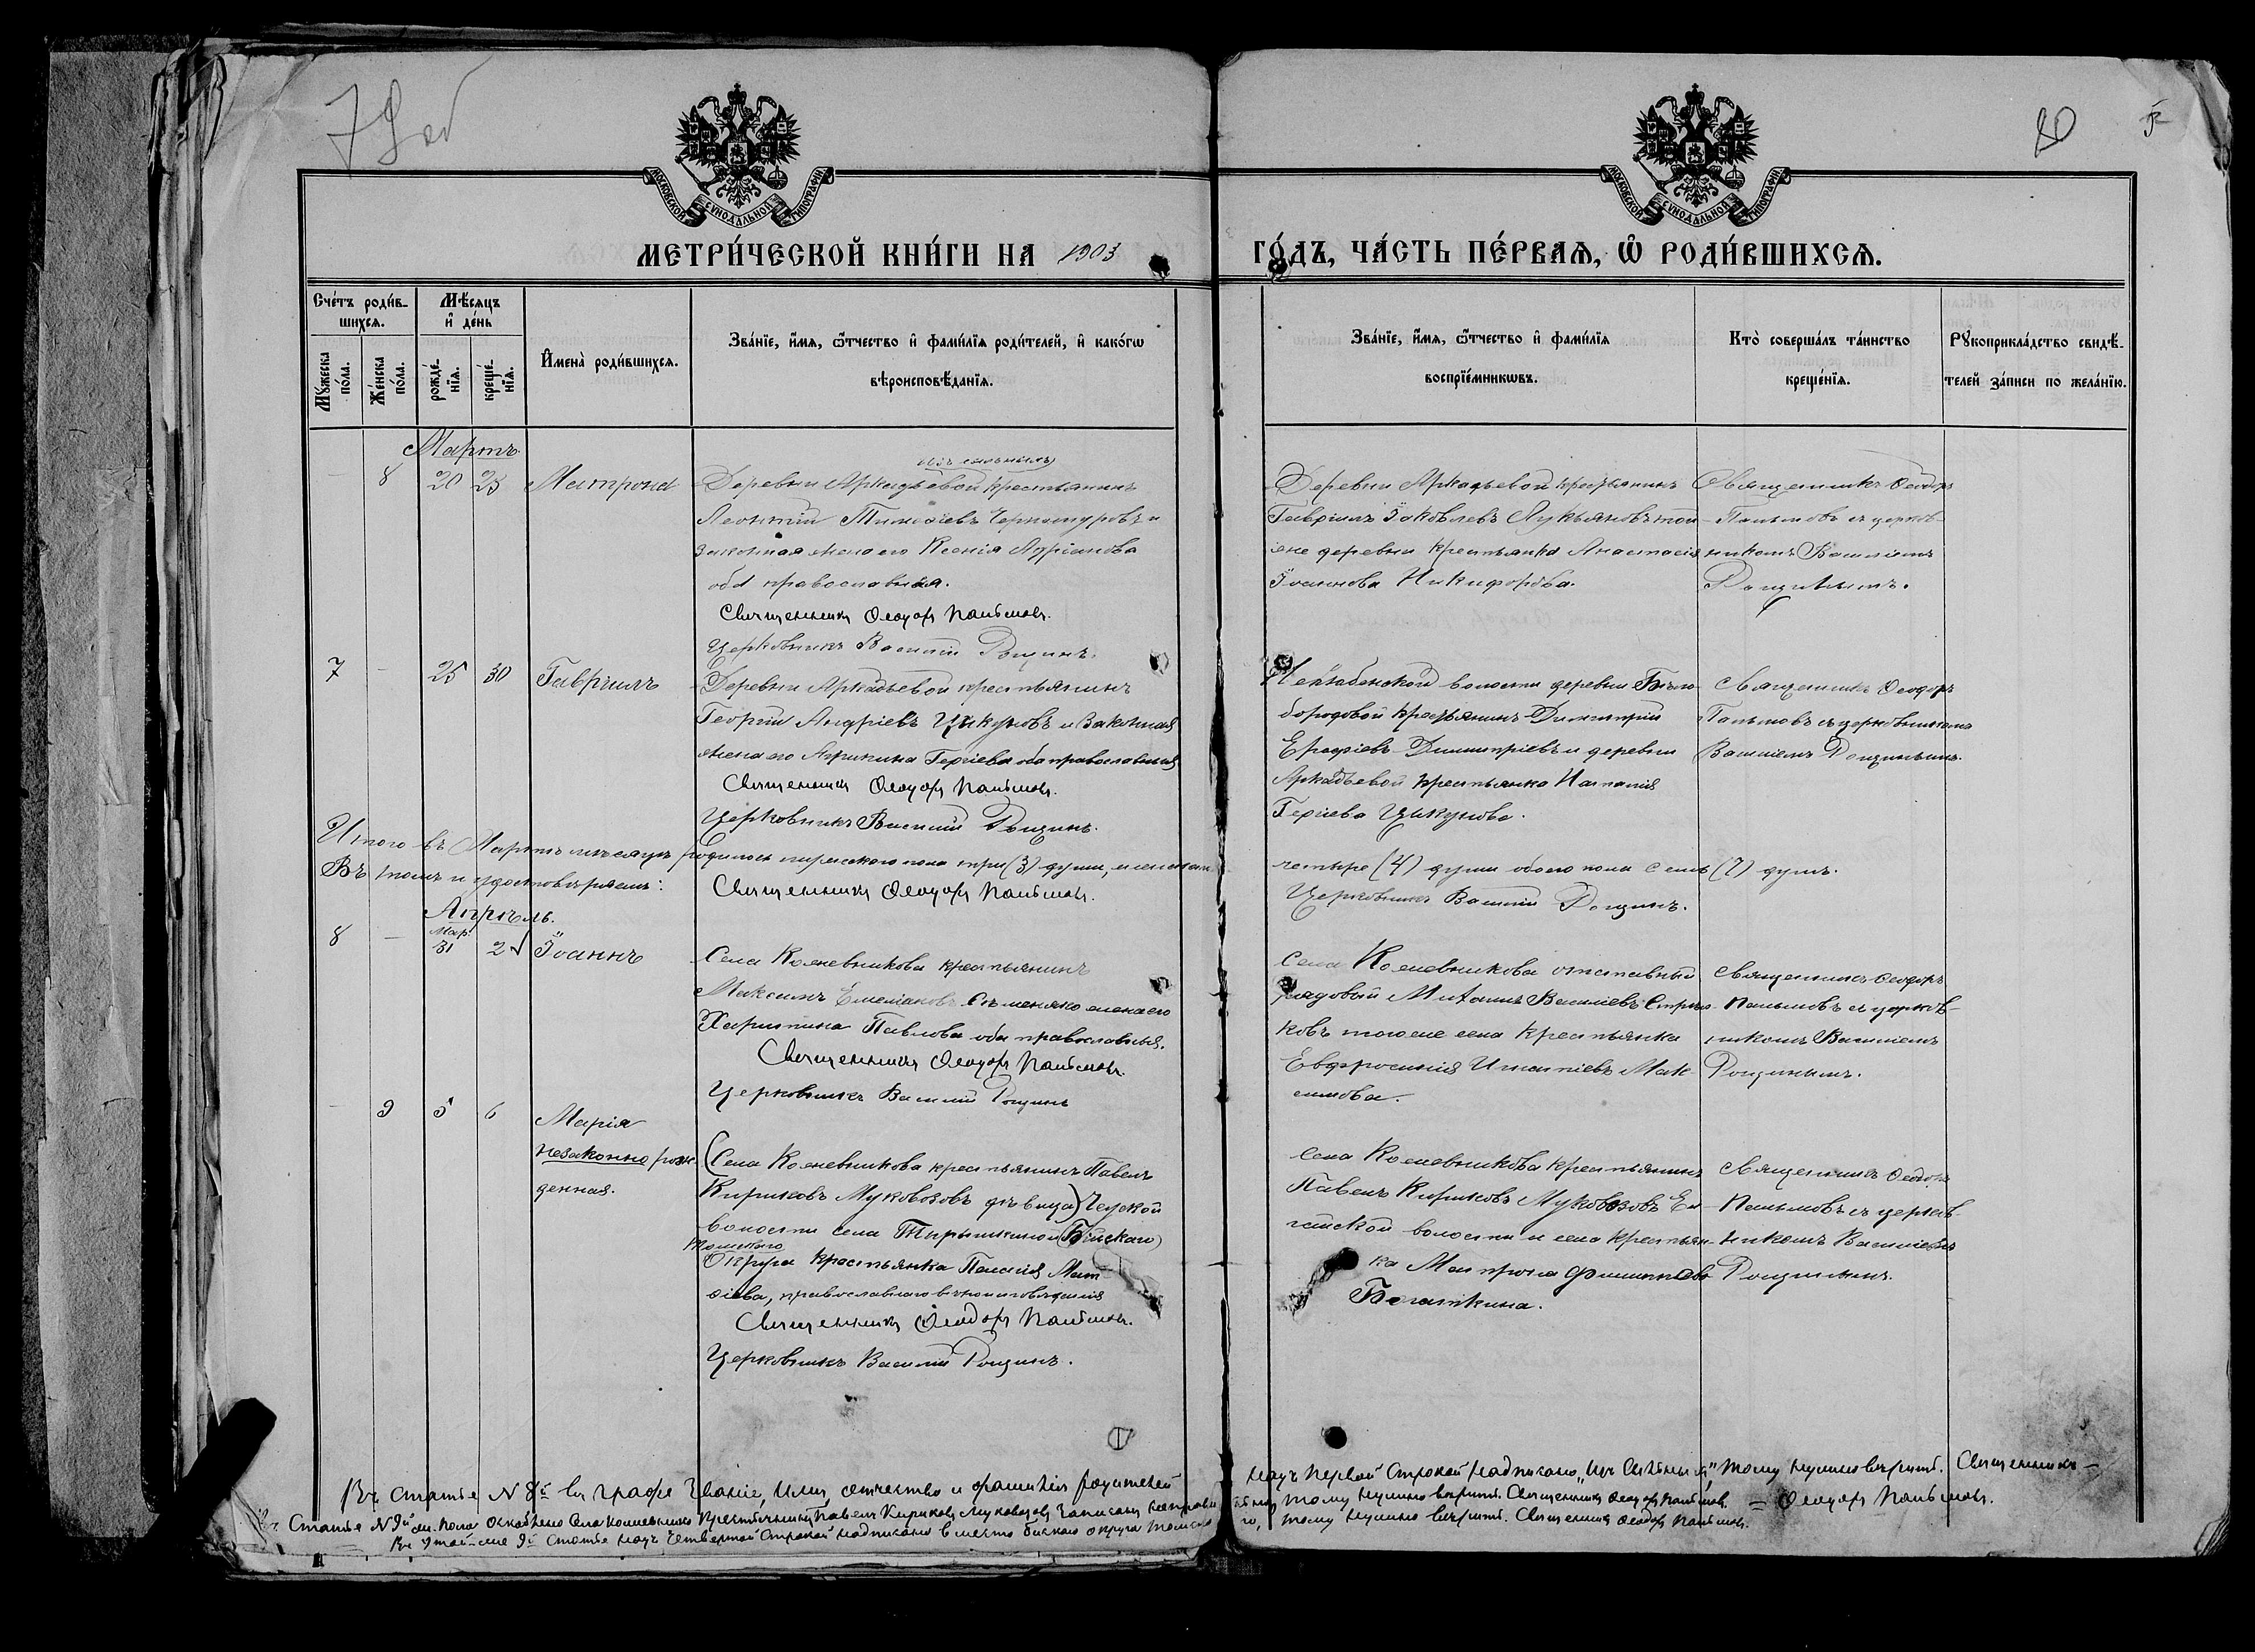 80
МОСКОВСКОЙ СѴНОДАЛЬНОЙ ТИПОГРАФІИ
МОСКОВСКОЙ СѴНОДАЛЬНОЙ ТИПОГРАФІИ
МЕТРИ́ЧЕСКОЙ КНИ́ГИ НА 1903 ГО́ДЪ, ЧА́СТЬ ПЕ́РВАѦ, Ѿ РОДИ́ВШИХСѦ.
Сче́тъ роди́в-
шихсѧ.
Мѹжеска по́ла.
Же́нска по́ла.
Мѣ́сѧцъ и҆ де́нь
рожде́-нїѧ.
креще́-нїѧ.
И҆мена̀ роди́вшихсѧ.
Зва́нїе, и҆́мѧ, ѻ҆́тчество и҆ фами́лїѧ роди́телей, и҆ како́гѡ
вѣроисповѣ́данїѧ.
Зва́нїе, и҆́мѧ, ѻ҆́тчество и҆ фами́лїѧ
воспрїе́мникѡвъ.
Кто̀ соверша́лъ та́инство
креще́нїѧ.
Рѹкоприкла́дство свидѣ́-
телей за́писи по жела́нїю.
Мартъ.
8 20 25 Матрона
Деревни Аркадьевой крестьянинъ
Леонтій Тимоѳіевъ и
законная жена его Ксенія Адріанова
оба православныя.
Священникъ Ѳеодоръ Пальмовъ.
Церковникъ Василій Рощинъ.
Деревни Аркадьевой крестьянинъ
Гавріилъ Іаковлевъ Лукьяновъ той-
же деревни крестьянка Анастасія
Іоаннова Никифорова.
Священникъ Ѳеодоръ
Пальмовъ съ церков-
никомъ Василіемъ
Рощинымъ.
7 - 25 30 Гавріилъ
Деревни Аркадьевой крестьянинъ
Георгій Андріевъ Цикуновъ и законная
жена его Агрипина Георгіева оба православныя
Священникъ Ѳеодоръ Пальмовъ.
Церковникъ Василій Рощинъ.
волости деревни Бѣло-
бородовой крестьянинъ Димитрій
Ерофіевъ Димитріевъ и деревни
Аркадьевой крестьянка Наталія
Георгіева Цикунова.
Священникъ Ѳеодоръ
Пальмовъ съ церковникомъ
Василіемъ Рощинымъ.
Итого въ Мартѣ мѣсяцѣ родилось мужескаго пола три (3) души, женскаго
четыре (4) души обоего пола семь (7) душъ.
Въ томъ и удостовѣряемъ: Священникъ Ѳеодоръ Пальмовъ.
Церковникъ Василій Рощинъ.
Апрѣль.
8 - Мар. 31 2 Іоаннъ
Села Кожевникова крестьянинъ
Максимъ Емеліановъ жена его
Харитина Павлова оба православныя.
Священникъ Ѳеодоръ Пальмовъ.
Церковникъ Василій Рощинъ
Села Кожевникова отставной
рядовой Михаилъ Василіевъ
ковъ тогоже села крестьянка
Евфросинія Игнатіева Мак-
симова.
Священникъ Ѳеодоръ
Пальмовъ съ церков-
никомъ Василіемъ
Рощинымъ.
- 9 5 6 Марія
незаконно рож-
денная.
(Села Кожевникова крестьянинъ Павелъ
Кириковъ Муковозовъ дѣвица)
волости села Тырышкиной (Бійскаго)
Томскаго
Округа крестьянка Пелагія Мат-
ѳіева, православнаго вѣроисповѣданія
Священникъ Ѳеодоръ Пальмовъ.
Церковникъ Василій Рощинъ.
Села Кожевникова крестьянинъ
Павелъ Кириковъ Муковозовъ Ел-
гайской волости и села крестьян-
ка Матрона Филиппова
Богаткина.
Священникъ Ѳеодоръ
Пальмовъ съ церков-
никомъ Василіемъ
Рощинымъ.
Въ статьѣ N 8й въ графѣ званіе, имя, отчество и фамилія родителей
надъ первой строкой надписано „изъ ссыльныхъ“, тому нужно вѣрить. Священникъ
Ѳеодоръ Пальмовъ.
Статьѣ N 9й жен. пола села Кожевникова крестьянинъ Павелъ Кириковъ Муковозовъ
тому нужно вѣрить. Священникъ Ѳеодоръ Пальмовъ.
Въ этой-же 9й статьѣ надъ четвертой строкой надписано вмѣсто бійскаго округа томска-
го, тому нужно вѣрить. Священникъ Ѳеодоръ Пальмовъ.